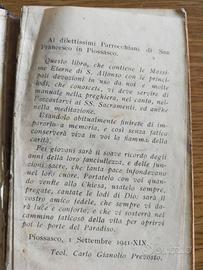 Ai dilettissimi Parrocchiani di San
Francesco in Piossasco.
Questo libro, che contiene le Massi-
me Eterne di S. Alfonso con le princi-
pali devozioni in uso da noi e molte
lodi, che conoscete, vi deve servire di
manuale nella preghiera, nel canto, nel-
l'accostarvi ai SS. Sacramenti, ed anche
nella meditazione.
Usandolo abitualmente finirete di im-
pararlo a memoria, e così senza fatica
conserverà viva in voi la fiamma della
carità.
Pei giovani sarà il soave ricordo degli
anni della loro fanciullezza, e delle funzio-
ni sacre, che tanta pace infondevano
nei loro cuori. Portatelo con voi quando
venite alla Chiesa, usatelo sempre,
pregate, cantate le lodi di Dio; sarà il
vostro amico fedele, che sempre vi da-
rà luce e conforto, e che vi sosterrà nel
cammino faticoso della vita per aprirvi
poi le porte del Paradiso.
Piossasco, 1 Settembre 1941-XIX.
Teol. Carlo Gianolio Prevosto.